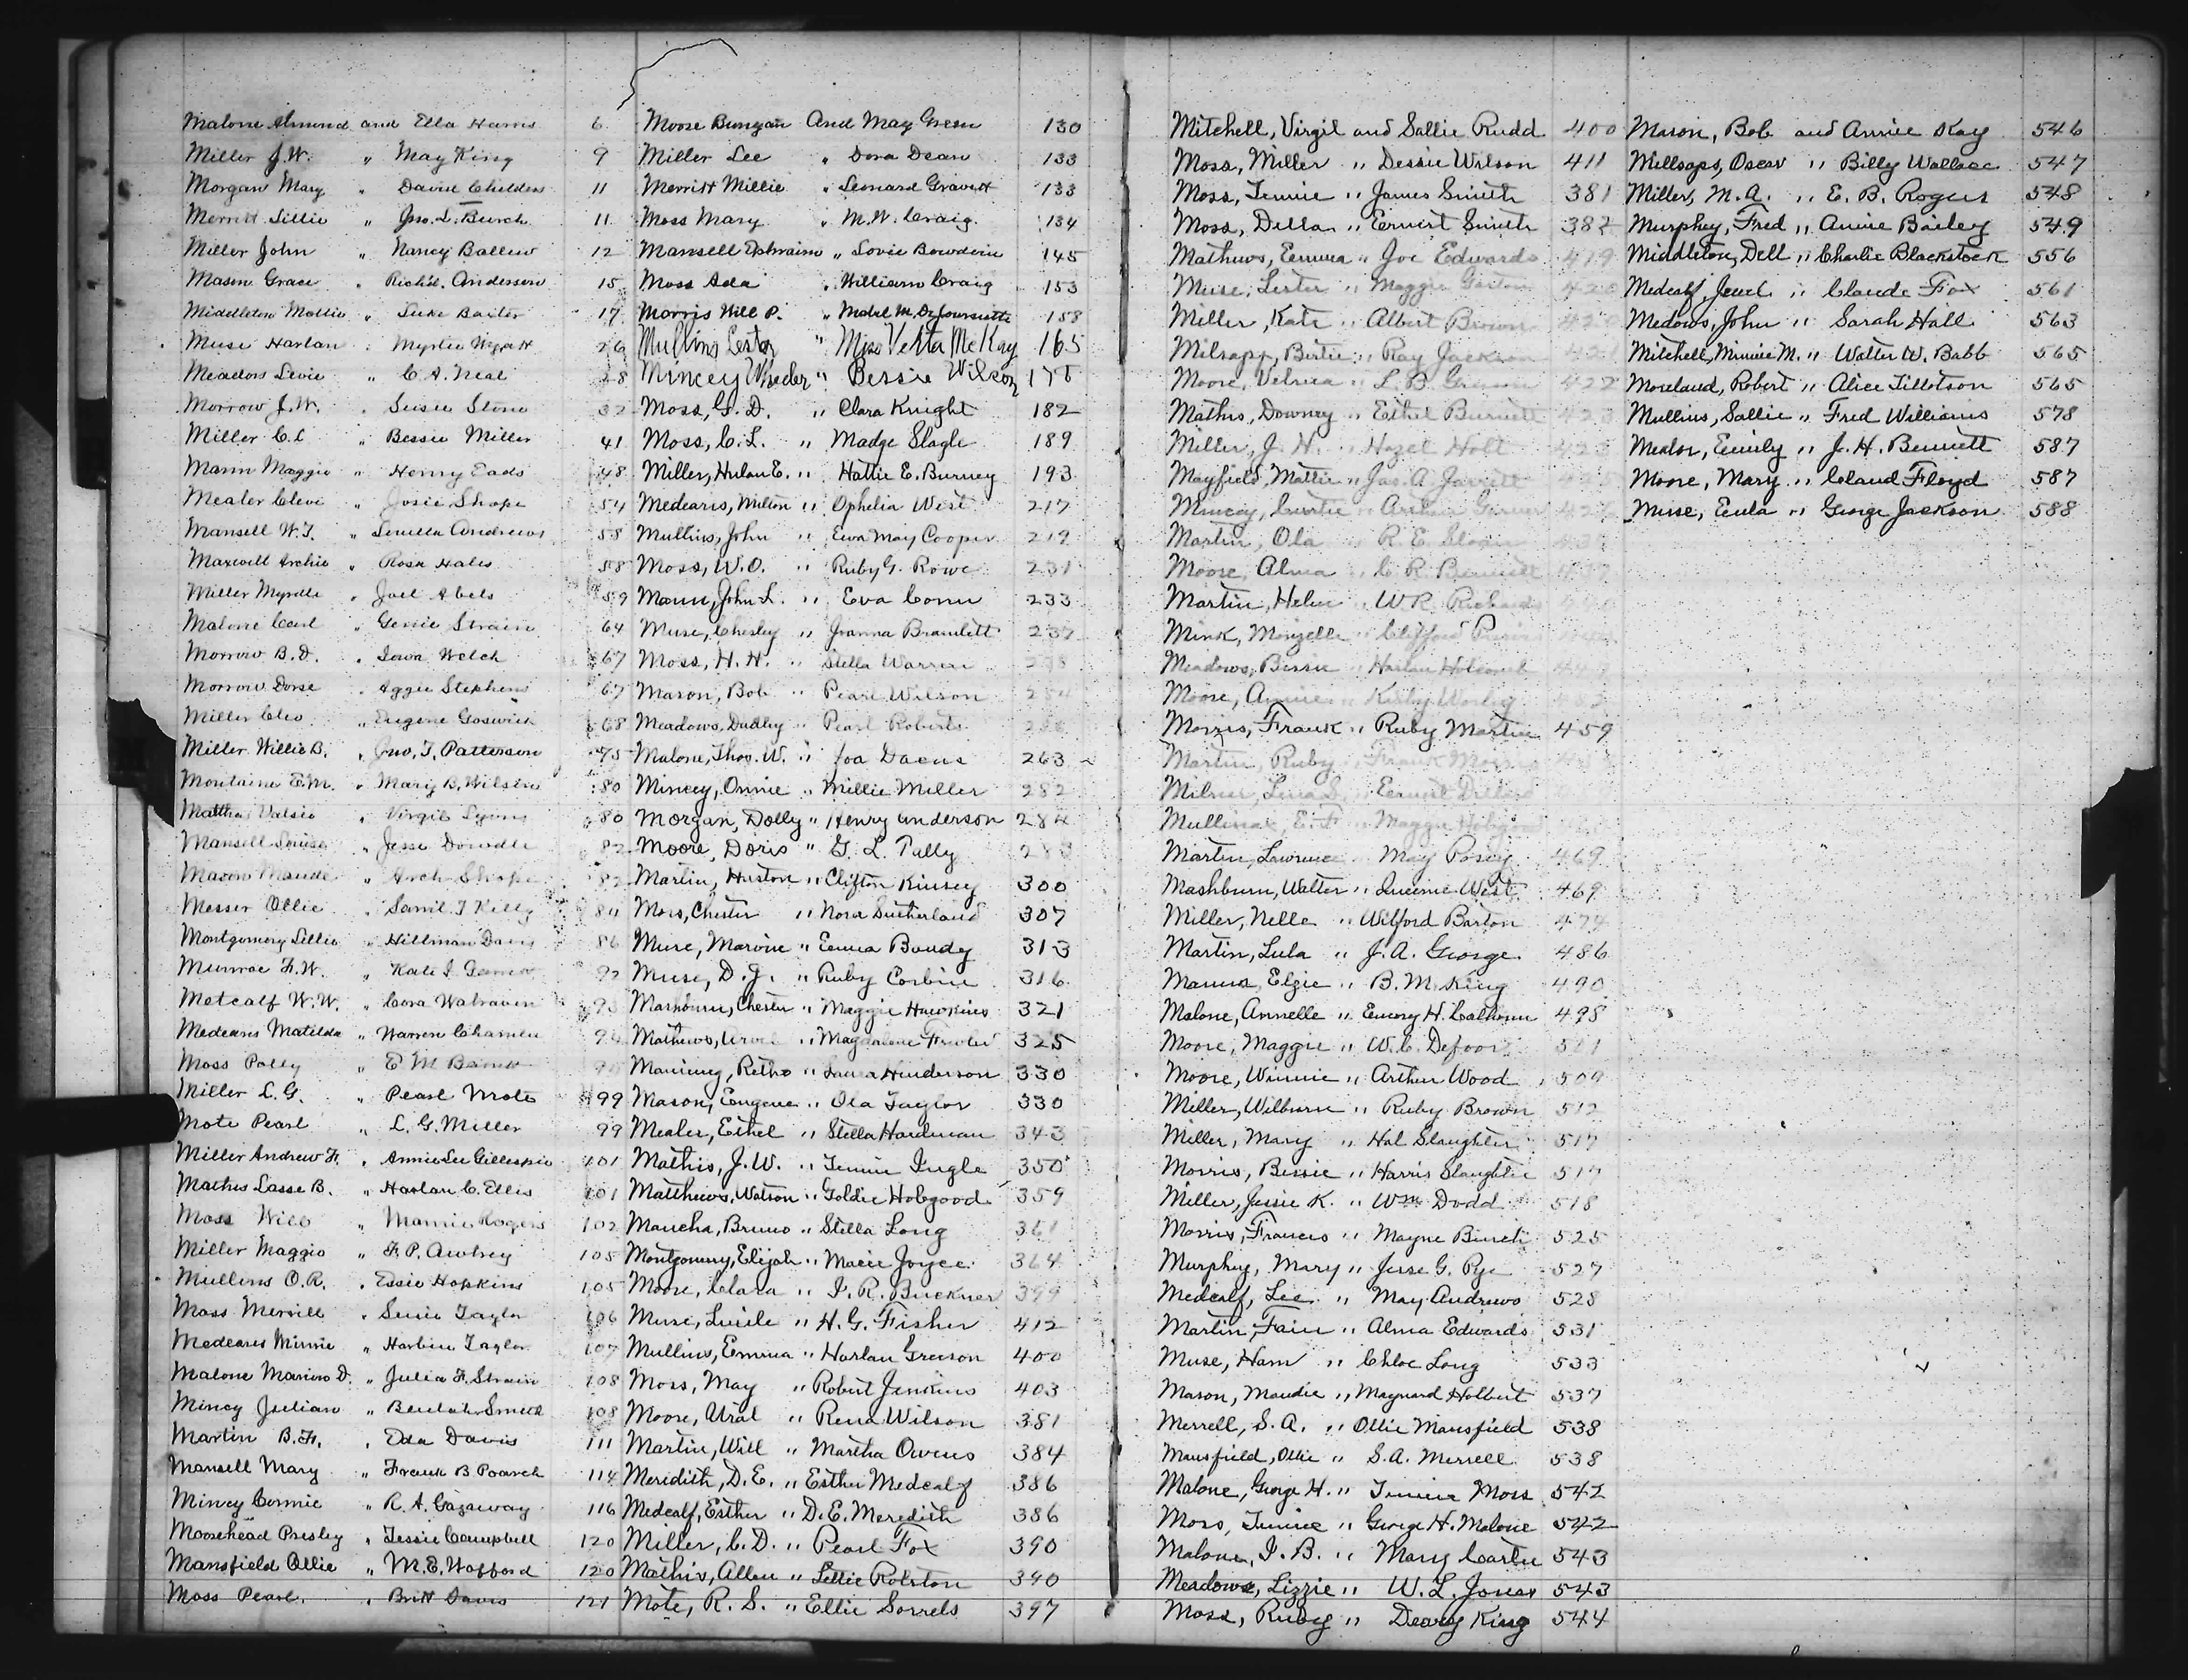 Malone Almond and Ella Harris 6
Miller J.W. " May King 9
Morgan Mary " David Childers 11
Merrett Lillie " Jno. L. Burch 11
Miller John " Nancy Ballew 12
Mason Grace " Rich'd. Anderson 15
Middleton Mollie " Luke Baxter 17
Muse Harlan " Myrtle Wyatt 26
Meadows Levie " C. A. Neal 28
Morrow J.W. " Susie Stone 32
Miller C.L. " Bessie Miller 41
Mann Maggie " Henry Eads 48
Mealer Cleve " Josie Shope 54
Mansell W.T. " Andrews 58
Maxwell Archie " Rosa Hales 58
Miller Myrtle " Joel Abels 59
Malone Carl " Genie Strain 64
Morrow B.D. " Iowa Welch 67
Morrow Dorse " Aggie Stephens 67
Miller Cleo " Eugene Goswick 68
Miller Willie B. " Jno. T. Patterson 75
Montaine E.M. " Mary B. Wilson 80
Valsie " Virgil Lyons 80
Mansell Louise " Jesse Dowdle 82
Mason Maude " Arch Shope 82
Messer Ollie " Saml. T Kelly 84
Montgomery Lillie " Hillman Davis 86
Munroe F.W. " Kate I. 92
Metcalf W.W. " Cora Watraven 93
Medearis Matilda " Warren 94
Moss Polly " E M
Miller L.G. " Pearl Mote 99
Mote Pearl " L. G. Miller 99
Miller Andrew F. " Annie Lee Gillespie 101
Mathis Lasse B. " Harlan C. Ellis 101
Moss Will " Mamie Rogers 102
Miller Maggie " F. P. Awtrey 105
Mullins O.R. " Essie Hopkins 105
Moss Merrill " Susie Taylor 106
Medearis Minnie " Harbin Taylor 107
Malone Marion D. " Julia F. Strain 108
Mincy Julian " Beulah Smith 108
Martin B.F. " Eda Davis 111
Mansell Mary " Frank B Poarch 114
Mincy Connie " R. A. Gazaway 116
Moosehead Presley " Tessie Campbell 120
Mansfield Ollie " M.E. Wofford 120
Moss Pearl " Britt Davis 121
Moose Bunyan And May Green 130
Miller Lee " Dora Dean 133
Merritt Millie " Leonard Gravett 133
Moss Mary " M.W. Craig 134
Mansell Ephraim " Lovie Bowden 145
Moss Ada " William Craig 153
Morris Will P. " Mabel M. 158
Mullins Lester " Miss Vesta McKay 165
Mincey Wheeler " Bessie Wilson
Moss, G. D. " Clara Knight 182
Moss, C. L. " Madge Slagle 189
Miller, Hulan E. " Hattie E. Burney 193
Medearis, Milton " Ophelia West 217
Mullins, John " Eva May Cooper 219
Moss, W.O. " Ruby G. Rowe 231
Mann, John L. " Eva Conn 233
Muse, Chesley " Joanna Bramlett 237
Moss, H. H. " Stella Warren 238
Mason, Bob " Pearl Wilson 254
Meadows, Dudley " Pearl Roberts
Malone, Thos. W. " Ioa Dacus 263
Mincey, Onnie " Millie Miller 282
Morgan, Dolly " Henry Anderson 284
Moore, Doris " G. L. Pally 288
Martin, Huston " Clifton Kinsey 300
Moss, Chester " Nora Sutherland 307
Muse, Marvin " Emma Bandy 313
Muse, D. J. " Ruby Corbin 316
Mashburn, Chester " Maggie Hawkins 321
Mathews, " Magdalene Fowler 325
Manning, Retha " Laura Hinderson 330
Mason, Eugene " Ola Taylor 330
Mealer, Ethel " Stella Hardman 343
Mathis, J. W. " Jennie Ingle 350
Matthews, Watson " Goldie Hobgood 359
Mancha, Bruno " Stella Long 361
Montgomery, Elijah " Macie Joyce 364
Moore, Clara " I. R. Buckner 399
Muse, Lucile " H. G. Fisher 412
Mullins, Emma " Harlan Greeson 400
Moss, May " Robert Jenkins 403
Moore, Ural " Rena Wilson 381
Martin, Will " Martha Owens 384
Meridith, D. E. " Esther Medcalf 386
Medcalf, Esther " D. E. Meredith 386
Miller, C. D. " Pearl Fox 390
Mathis, Allen " Lillie Rolston 390
Mote, R. S. " Ellie Sorrels 397
Mitchell, Virgil and Sallie Rudd 400
Moss, Miller " Dessie Wilson 411
Moss, Jennie " James Smith 381
Moss, Della " Ernest Smith 382
Mathews, Emma " Joe Edwards 419
Muse, Lester " Maggie
Miller, Kate " Albert Brown
Milsapp, Bertie " Ray Jackson 421
Moore, Velma " L. B. 422
Mathis, Downey " Ethel Burnett 423
Miller, J. H. " Hazel Holt
Mayfield, Mattie " Jas. A. Jarrett
Mincey, " Arthur
Martin, Ola " R. E.
Moore, Alma " C. R. Bennett
Martin, Helen " W. R. Richards
Mink, Monzelle " Clifford
Meadows, Bessie " Harlan Holcomb
Moore, Annie " Kirby
Morris, Frank " Ruby Martin 459
Martin, Ruby " Frank Morris
Milner, " Ernest
Mullinax, E. F. " Maggie Hobgood
Martin, Lawrence " May Posey 469
Mashburn, Walter " Queenie West 469
Miller, Nelle " Wilford Barton 474
Martin, Lula " J. A. George 486
Manus, Elzie " B. M. King 490
Malone, Annelle " Emory H. Calhoun 498
Moore, Maggie " W. C. Defoor 501
Moore, Winnie " Arthur Wood 509
Miller, Wilburn " Ruby Brown 512
Miller, Mary " Hal Slaughter 517
Morris, Bessie " Harris Slaughter 517
Miller, Jessie K. " Wm Dodd 518
Morris, Frances " Mayne Burch 525
Murphey, Mary " Jesse G. Pye 527
Medcalf, Lee " May Andrews 528
Martin, Fain " Alma Edwards 531
Muse, Ham " Chloe Long 533
Mason, Maudie " Maynard Holbert 537
Merrell, S. A. " Ollie Mansfield 538
Mansfield, Ollie " S. A. Merrell 538
Malone, George H. " Jennie Moss 542
Moss, Jennie " George H. Malone 542
Malone, I. B. " Mary Carter 543
Meadows, Lizzie " W. L. Jones 543
Moss, Ruby " Dewey King 544
Mason, Bob and Annie Kay 546
Millsaps, Oscar " Billy Wallace 547
Miller, M. A. " E. B. Rogers 548
Murphey, Fred " Annie Bailey 549
Middleton, Dell " Charlie Blackstock 556
Medcalf, Jewel " Claude Fox 561
Medows, John " Sarah Hall 563
Mitchell, Minnie M. " Walter W. Babb 565
Moreland, Robert " Alice Tillotson 565
Mullins, Sallie " Fred Williams 578
Mealor, Emily " J. H. Bennett 587
Moore, Mary " Claud Floyd 587
Muse, Eula " George Jackson 588